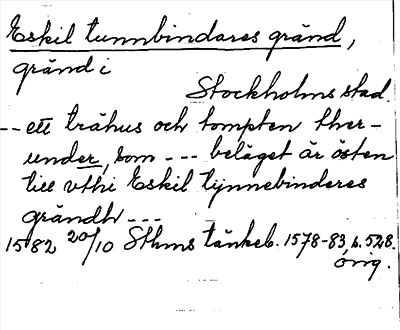 Eskil tunnbindares gränd,
gränd i
Stockholms stad.
-- ett trähus och tompten ther-
under, som --- beläget är östen
till vthi Eskil tijnnebinderes
grändh ---
1582 20/10 Sthms tänkeb. 1578-83, s. 528.
orig.